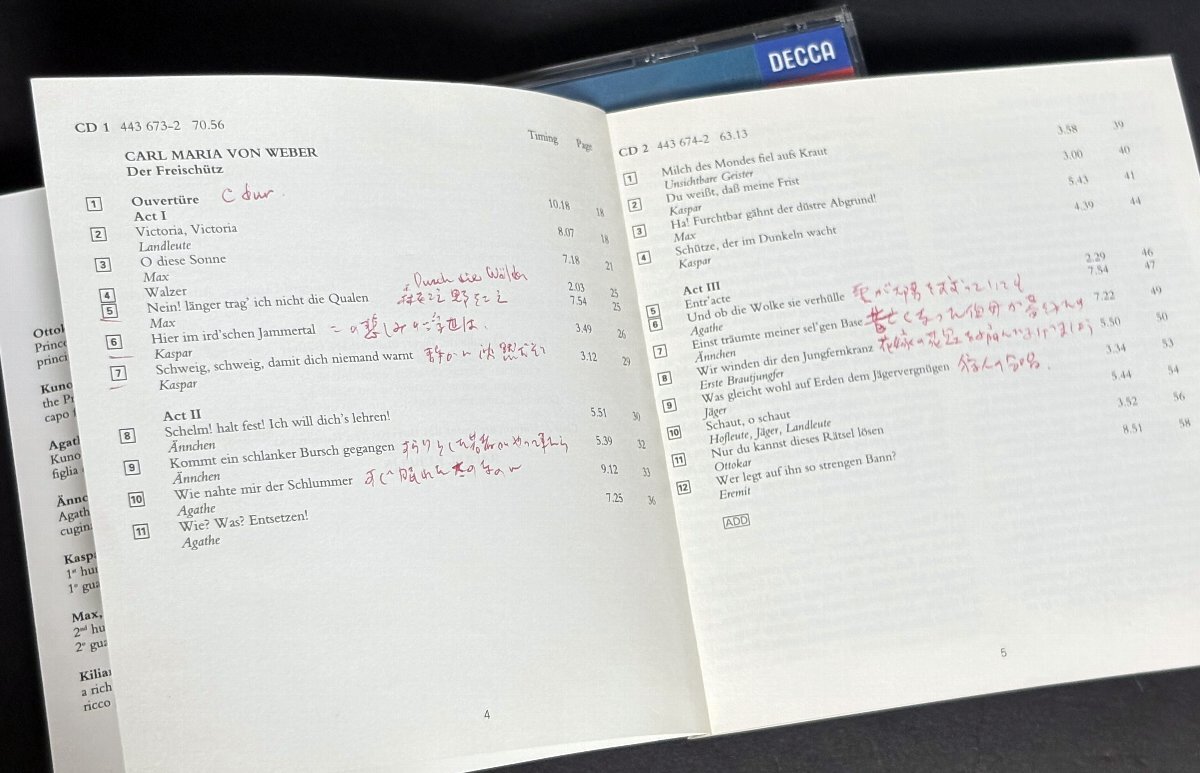 DECCA
CD 1 443 673-2 70.56
Timing Page
CARL MARIA VON WEBER
Der Freischütz
1 Ouvertüre C dur. 10.18 18
Act I
2 Victoria, Victoria 8.07 18
Landleute
3 O diese Sonne 7.18 21
Max
4 Walzer 2.03 25
Durch die Wälder
5 Nein! länger trag' ich nicht die Qualen 森をこえ野をこえ 7.54 25
Max
6 Hier im ird'schen Jammertal この悲しみの浮世は 3.49 26
Kaspar
7 Schweig, schweig, damit dich niemand warnt 静かに 3.12 29
Kaspar
Act II
8 Schelm! halt fest! Ich will dich's lehren! 5.51 30
Ännchen
9 Kommt ein schlanker Bursch gegangen すらりとした若者がやって来たら 5.39 32
Ännchen
10 Wie nahte mir der Schlummer 9.12 33
Agathe
11 Wie? Was? Entsetzen! 7.25 36
Agathe
4
CD 2 443 674-2 63.13
1 Milch des Mondes fiel aufs Kraut 3.58 39
Unsichtbare Geister
2 Du weißt, daß meine Frist 3.00 40
Kaspar
3 Ha! Furchtbar gähnt der düstre Abgrund! 5.43 41
Max
4 Schütze, der im Dunkeln wacht 4.39 44
Kaspar
Act III
5 Entr'acte 2.29 46
6 Und ob die Wolke sie verhülle 雲が太陽をさえぎっていても 7.54 47
Agathe
7 Einst träumte meiner sel'gen Base 亡くなった伯母が 7.22 49
Ännchen
8 Wir winden dir den Jungfernkranz 5.50 50
Erste Brautjungfer
9 Was gleicht wohl auf Erden dem Jägervergnügen 狩人の合唱 3.34 53
Jäger
10 Schaut, o schaut 5.44 54
Hofleute, Jäger, Landleute
11 Nur du kannst dieses Rätsel lösen 3.52 56
Ottokar
12 Wer legt auf ihn so strengen Bann? 8.51 58
Eremit
ADD
5
Kuno
Kuno
figlia
Agath
cugin
1st hu
1° gua
Max,
2nd hu
2° gua
Kilian
a rich
ricco